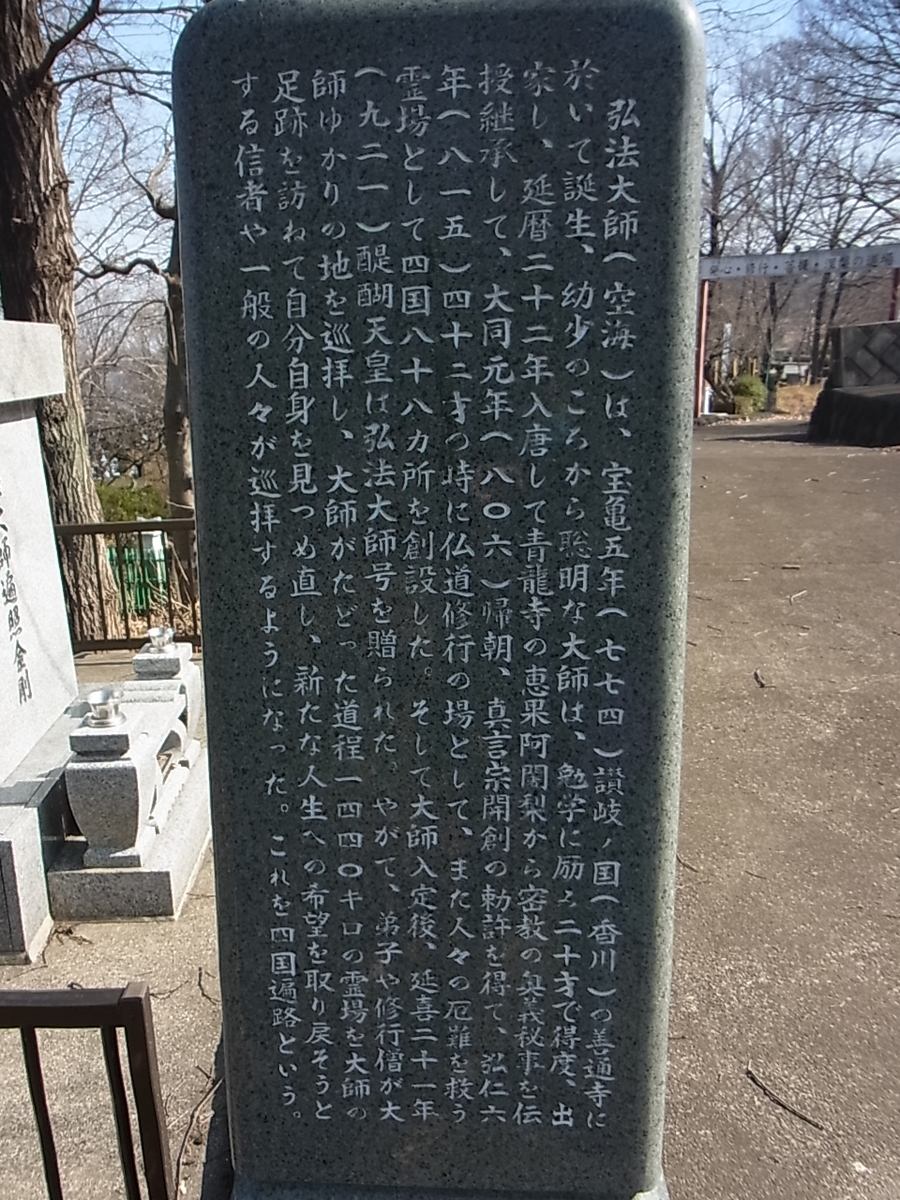 弘法大師(空海)は、宝亀五年(七七四)讃岐ノ国(香川)の善通寺に
於いて誕生、幼少のころから聡明な大師は、勉学に励み二十才で得度、出
家し、延暦二十二年入唐して青龍寺の恵果阿闍梨から密教の奥義秘事を伝
授継承して、大同元年(八〇六)帰朝、真言宗開創の勅許を得て、弘仁六
年(八一五)四十二才の時に仏道修行の場として、また人々の厄難を救う
霊場として四国八十八カ所を創設した。そして大師入定後、延喜二十一年
(九二一)醍醐天皇は弘法大師号を贈られた。やがて、弟子や修行僧が大
師ゆかりの地を巡拝し、大師がたどった道程一四四〇キロの霊場を大師の
足跡を訪ねて自分自身を見つめ直し、新たな人生への希望を取り戻そうと
する信者や一般の人々が巡拝するようになった。これを四国遍路という。
大師遍照金剛